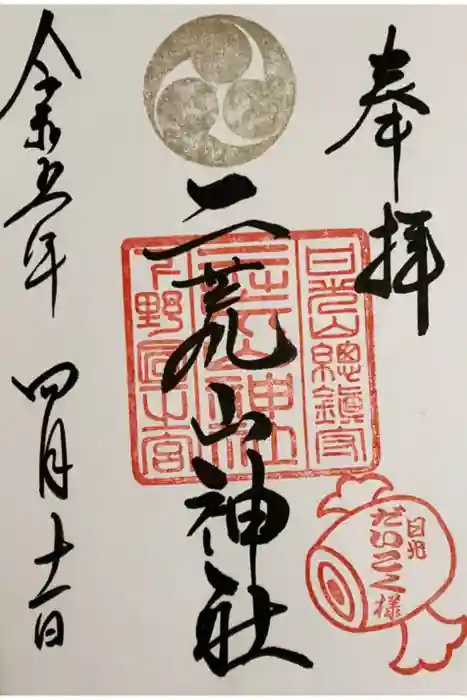 奉拝
日光山總鎮守
二荒山神社
下野國一之宮
日光
だいこく様
令和五年
四月十一日